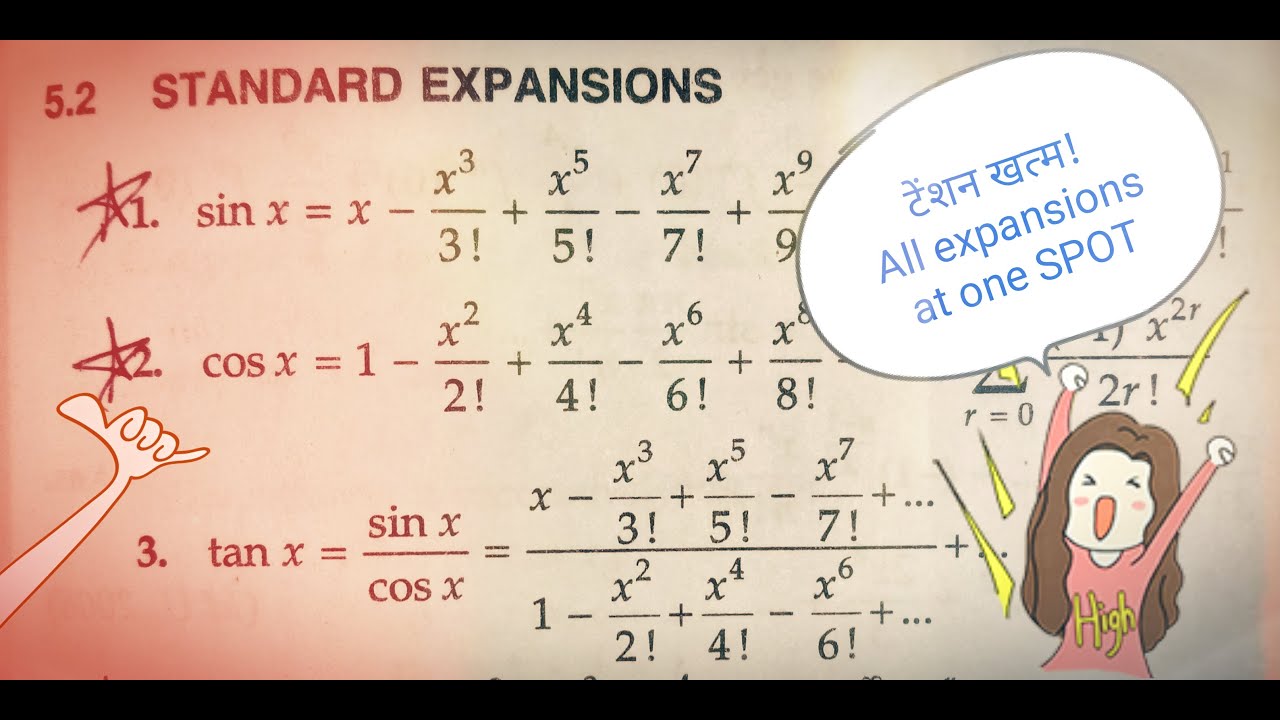 5.2 STANDARD EXPANSIONS
1. sin x = x − x³/3! + x⁵/5! − x⁷/7! + x⁹/9
2. cos x = 1 − x²/2! + x⁴/4! − x⁶/6! + x⁸/8! x²ʳ/2r!
r = 0
3. tan x = sin x/cos x = (x − x³/3! + x⁵/5! − x⁷/7! + ...)/(1 − x²/2! + x⁴/4! − x⁶/6! + ...) + ...
टेंशन खत्म!
All expansions
at one SPOT
High